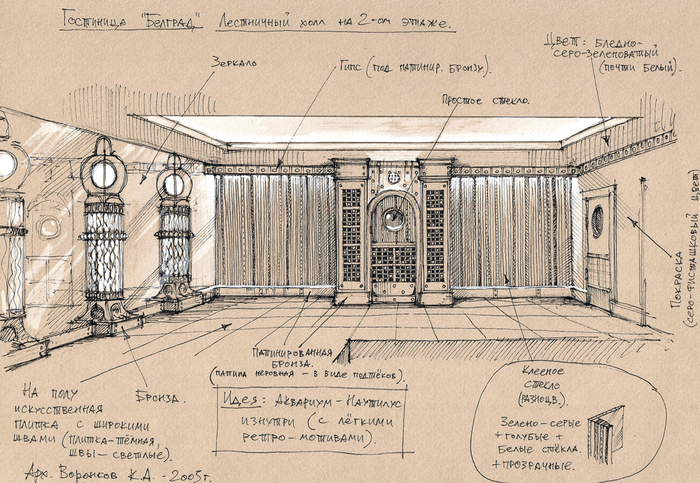 Гостиница "Белград" Лестничный холл на 2-ом этаже.
Цвет: бледно-
серо-зеленоватый
(почти белый).
Зеркало
Гипс (под патинир. бронзу).
Простое стекло.
Покраска
(серо-фисташковый цвет)
Патинированная
бронза.
(патина неровная – в виде подтёков).
Бронза.
На полу
искусственная
плитка с широкими
швами (плитка-тёмная,
швы-светлые).
Идея: Аквариум-Наутилус
изнутри (с лёгкими
ретро-мотивами).
Клееное
стекло
(разноцв.)
Зелено-серые
+голубые +
Белые стёкла.
+прозрачные.
Арх. Воронков К.А. -2005г.